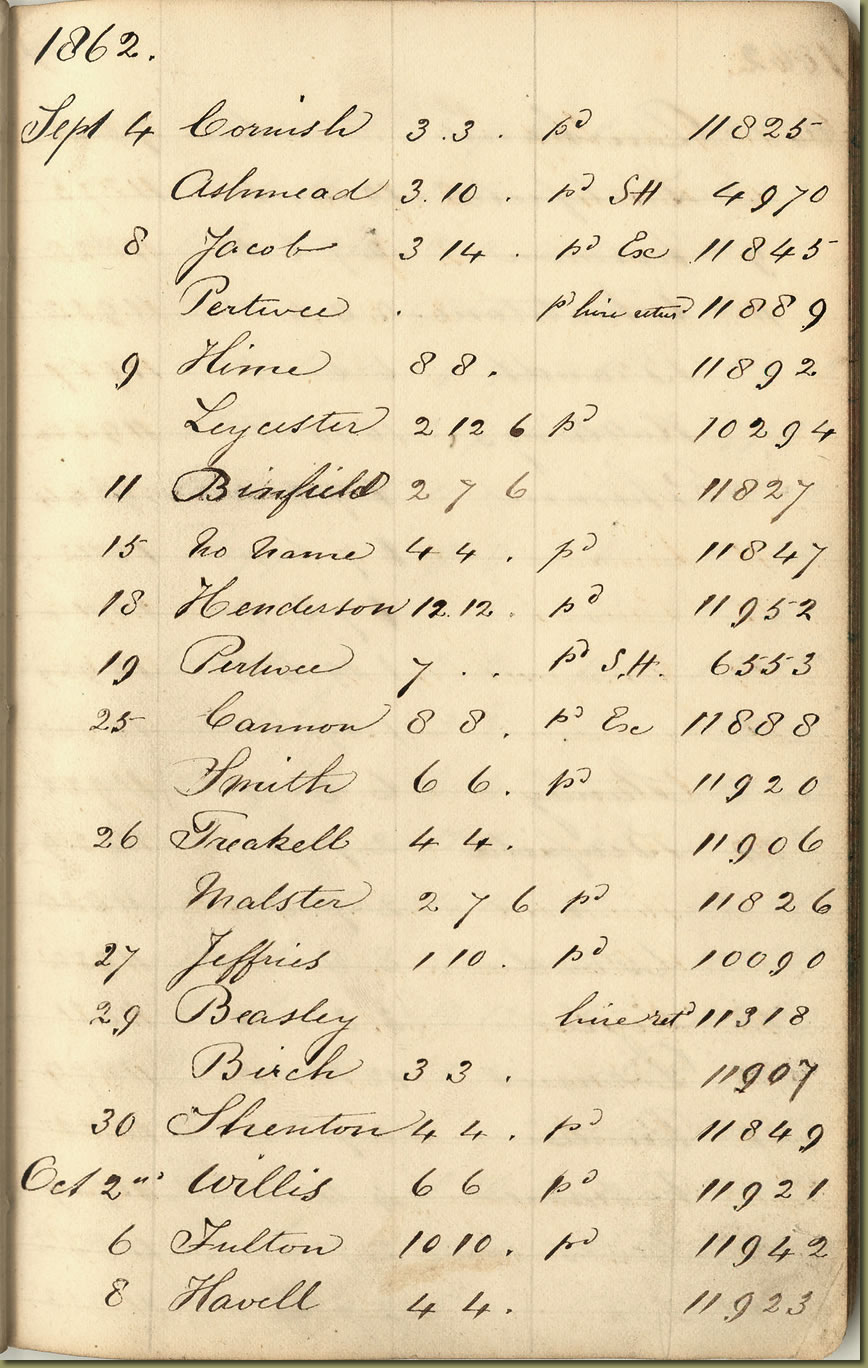 1862.
Sept 4 Cornish 3.3. pd 11825
Ashmead 3.10. pd SH 4970
8 Jacob 3 14. pd Ex 11845
Pertwee . pd hire retd 11889
9 Hime 8 8. 11892
Leycester 2 12 6 pd 10294
11 Binfield 2 7 6 11827
15 No Name 4 4. pd 11847
18 Henderson 12.12. pd 11952
19 Pertwee 7 . . pd S.H. 6553
25 Cannon 8 8. pd Ex 11888
Smith 6 6. pd 11920
26 Treakell 4 4. 11906
Malster 2 7 6 pd 11826
27 Jeffries 1 10. pd 10090
29 Beasley hire retd 11318
Birch 3 3. 11907
30 Shenton 4 4. pd 11849
Oct 2nd Willis 6 6 pd 11921
6 Fulton 10 10. pd 11942
8 Havell 4 4. 11923